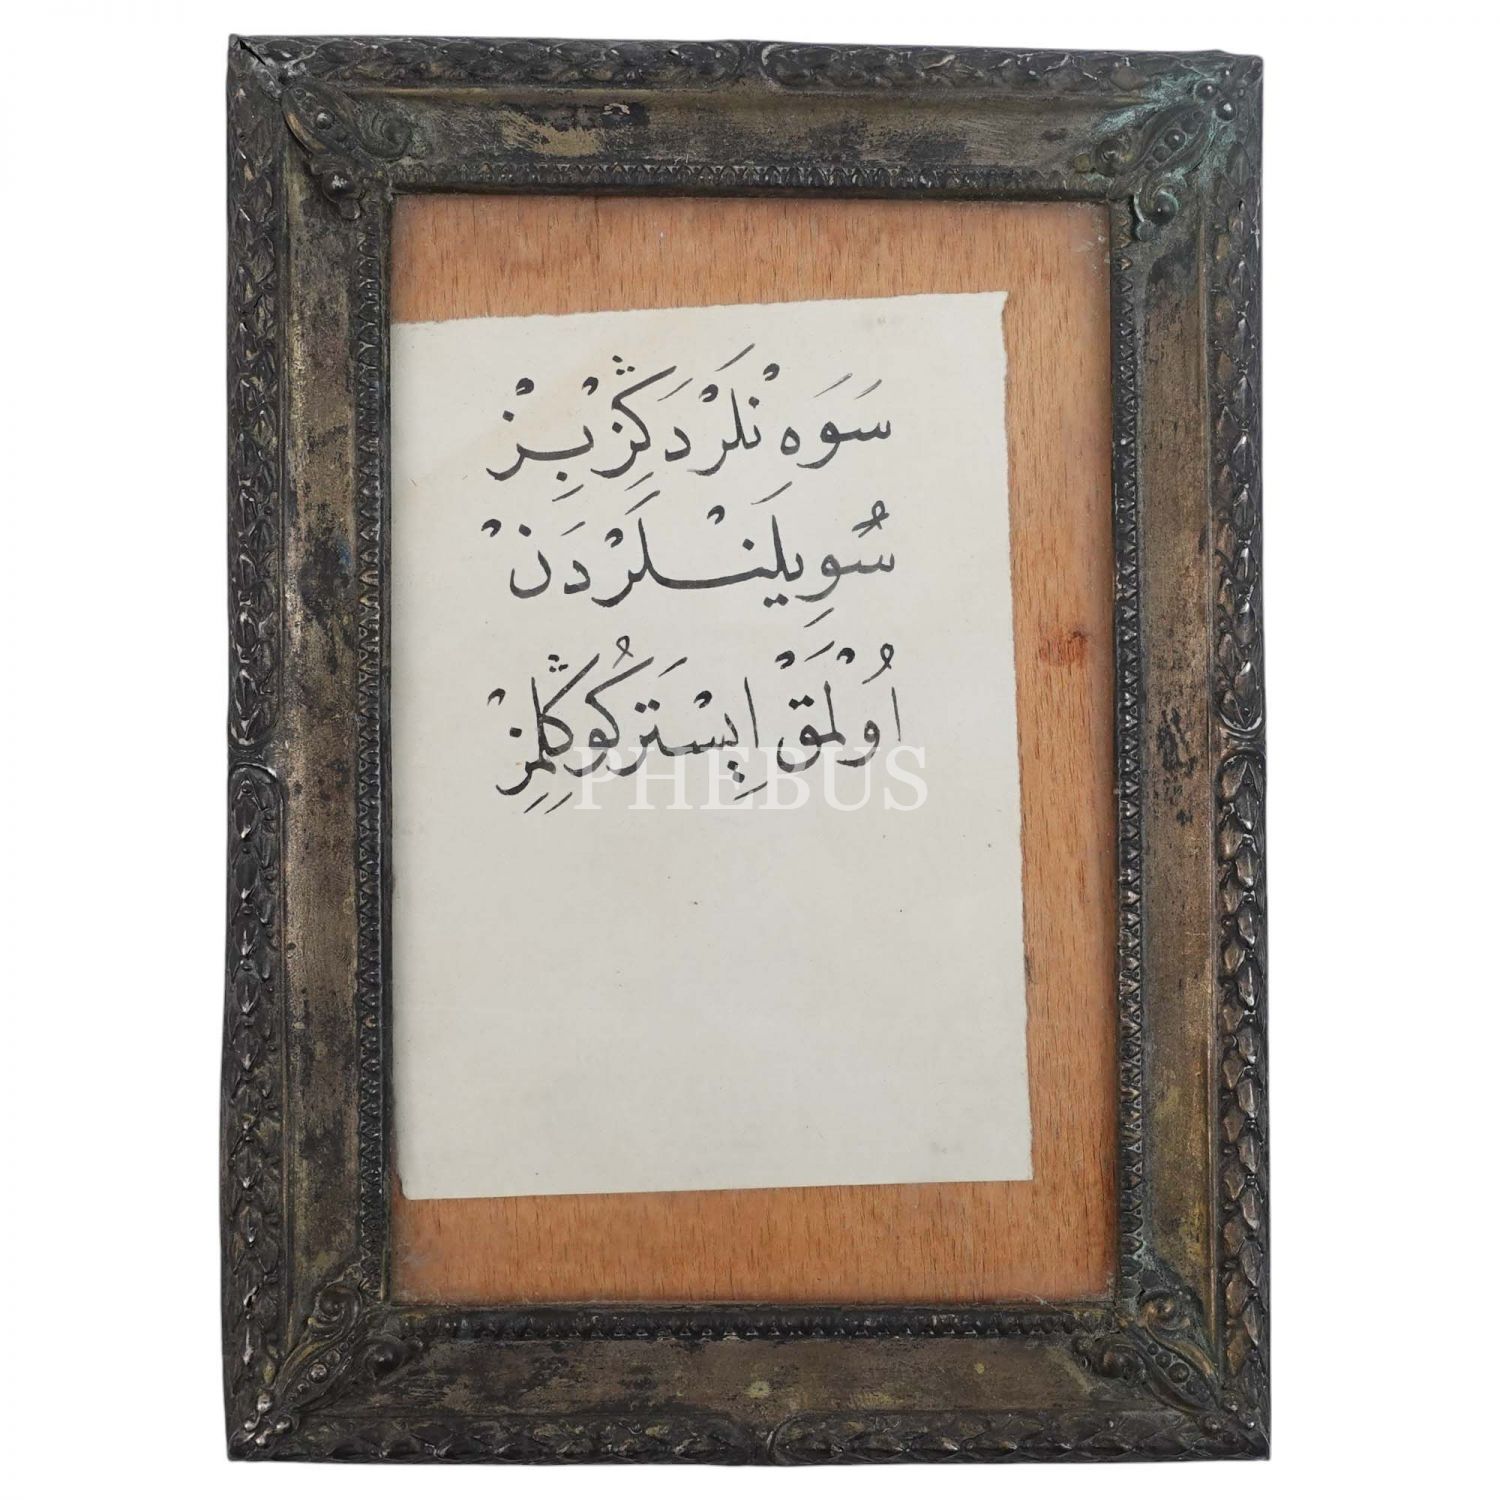 سَوَه نْلَرْدَڭِزْ بِزْ
سُوِيلَنْلَرْدَنْ
اُولْمَقْ اِيسْتَر كُوڭلِمِزْ
PHEBUS